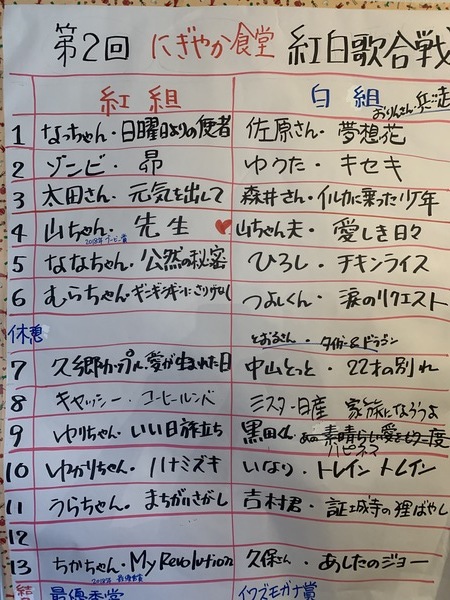 第2回 にぎやか食堂 紅白歌合戦
紅組 白組
おりんさん・兵に走
1 なっちゃん・日曜日よりの使者 佐原さん・夢想花
2 ゾンビ・昴 ゆうた・キセキ
3 太田さん・元気を出して 森井さん・イルカに乗った少年
4 山ちゃん・先生 ♥山ちゃん夫・愛しき日々
5 ななちゃん・公然の秘密 ひろし・チキンライス
6 むらちゃん・ギンギンギンにさりげなく つよしくん・涙のリクエスト
休憩 とおるさん・タイガー&ドラゴン
7 久郷カップル・愛が生まれた日 中山とっと・22才の別れ
8 キャッシー・コーヒールンバ ミスター日産 家族になろうよ
9 ゆりちゃん・いい日旅立ち 黒田くん・あの素晴らしい愛をもう一度
ハピネス
10 ゆかりちゃん・ハナミズキ いなり・トレイントレイン
11 うらちゃん・まちがいさがし 吉村君・証城寺の狸ばやし
12
13 ちかちゃん・My Revolution 久保さん・あしたのジョー
最優秀賞 イワズモガナ賞